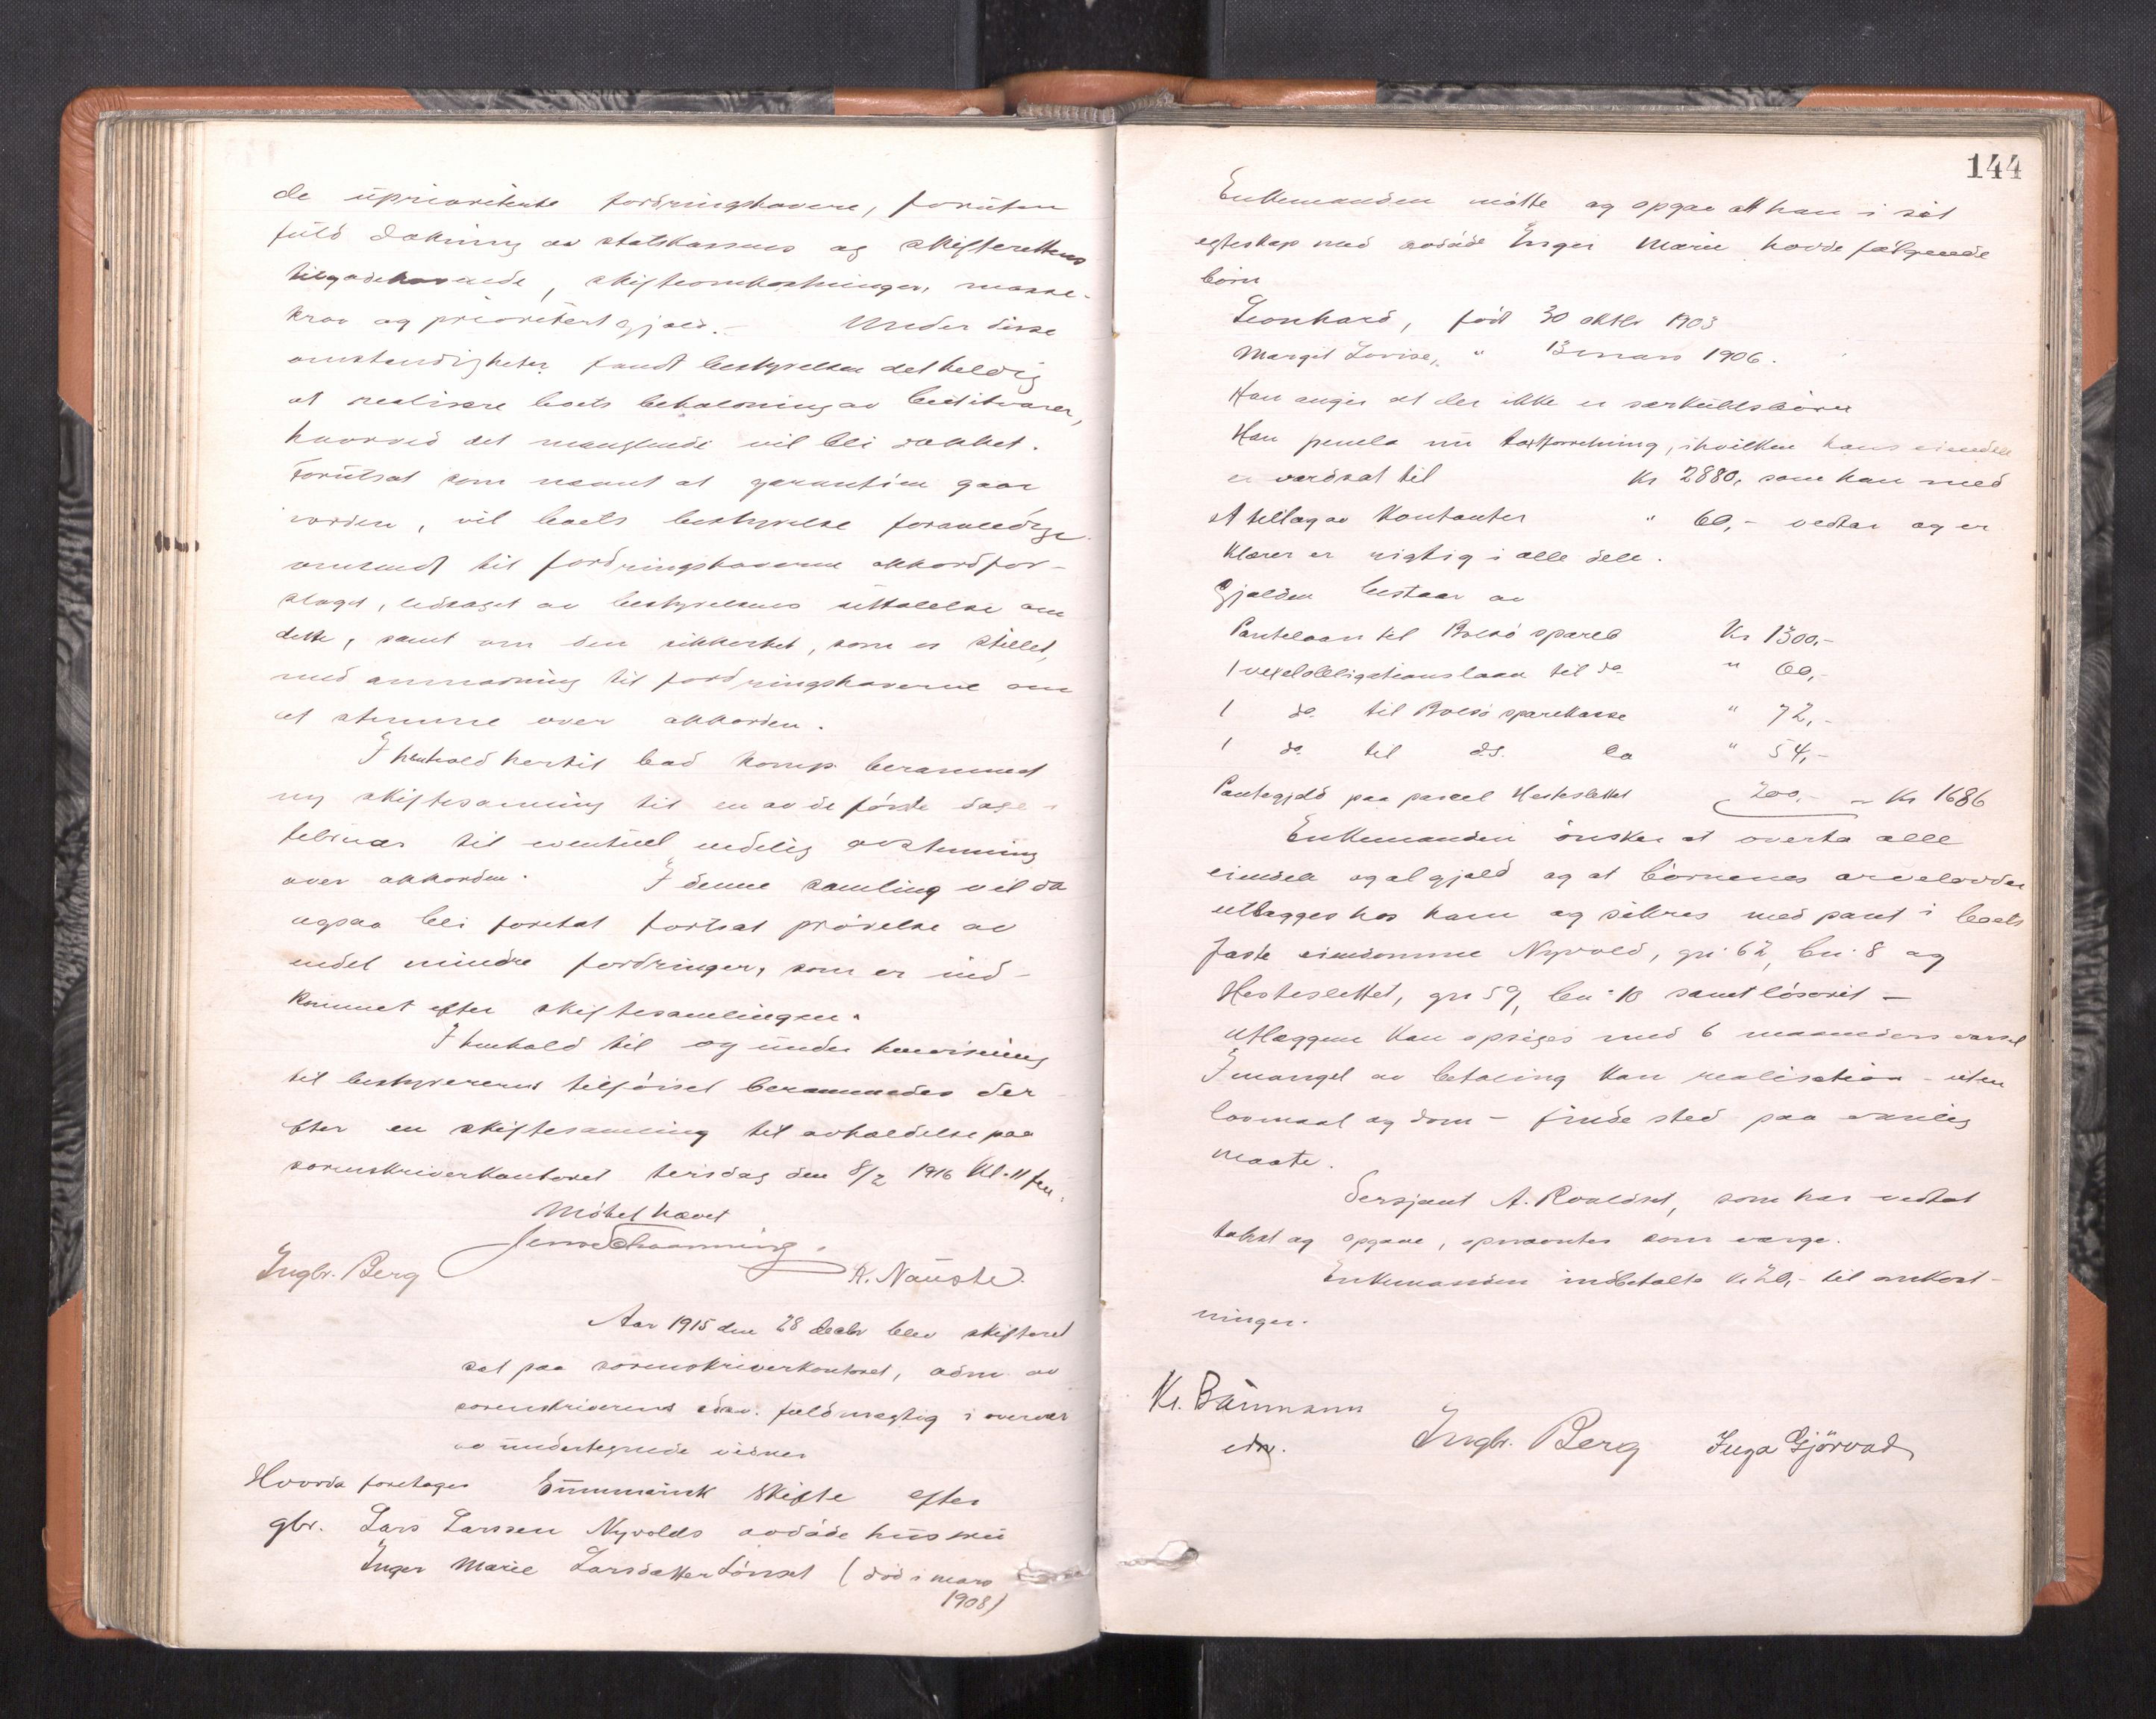 de uprioriterte fordringshavere, foruten
fuld dækning av statskassens og skifterettens
tilgodehavende, skifteomkostninger, masse-
krav og prioritert gjæld.- Under disse
omstendigheter fandt bestyrelsen det heldig
at realisere boets beholdning av
hvorved det manglende vil bli dækket.
Forutsat som nævnt at garantien gaar
iorden, vil boets bestyrelse foranledige
omsendt til fordringshaverne akkordfor-
slaget, ledsaget av bestyrelsens uttalelse om
dette, samt om den sikkerhet, som er stillet,
med anmodning til fordringshaverne om
at stemme over akkorden.
I henhold hertil bad komp. berammet
ny skiftesamling til en av de første dage i
februar til eventuel endelig avstemning
over akkorden. I denne samling vil da
ogsaa bli foretat fortsat prøvelse av
endel mindre fordringer, som er ind-
kommet efter skiftesamlingen.
I henhold til og under henvisning
til bestyrerens tilførsel berammedes der
efter en skiftesamling til avholdelse paa
sorenskriverkontoret tirsdag den 8/2 1916 kl. 11 fm.
Møtet hævet
Jens Schanning.
Ingbr. Berg K. Nauste.
Aar 1915 den 28 decbr blev skifteret
sat paa sorenskriverkontoret, adm. av
sorenskriverens edsv. fuldmægtig i overvær
av undertegnede vidner
Hvorda foretages Summarisk skifte efter
gbr. Lars Larssen Nyvolds avdøde hustru
Inger Marie Larsdatter Lønset (død i mars
1908)
144
Enkemanden møtte og opgav at han i sit
egteskap med avdøde Inger Marie havde følgende
børn
Leonhard, født 30 oktbr 1903
Margit Lovise, " 13 mars 1906.
Han angir at der ikke er særkuldsbørn
Han fremla nu takstforretning, ihvilken hans eiendele
er værdsat til Kr 2880, som han med
et tillæg av Kontanter " 60,- vedtar og er
klærer er rigtig i alle dele.
Gjælden bestaar av
Pantelaan til Bolsø spareb Kr 1300,-
1 vexelobligationslaan til do " 60,-
1 do. til Bolsø sparekasse " 72,-
1 do. til ds. lo " 54,-
Pantegjæld paa parcel Hesteslettet 200,- - Kr 1686
Enkemanden ønsker at overta alle
eiendele og al gjæld og at børnenes arvelodder
utlægges hos ham og sikres med pant i boets
faste eiendomme Nyvold, gn. 62, bn. 8 og
Hesteslettet, gn 59, bn. 10 samt løsøret -
Utlæggene kan opsiges med 6 maaneders varsel
I mangel av betaling kan realisation - uten
lovmaal og dom - finde sted paa vanlig
maate.
Sersjant A. Roaldset, som har vedtat
takst og opgave, opnævntes som verge.
Enkemanden indbetalte Kr 20,- til omkost-
ninger.
Kr. Baumann
edsv. Ingbr. Berg Inga Gjørvad